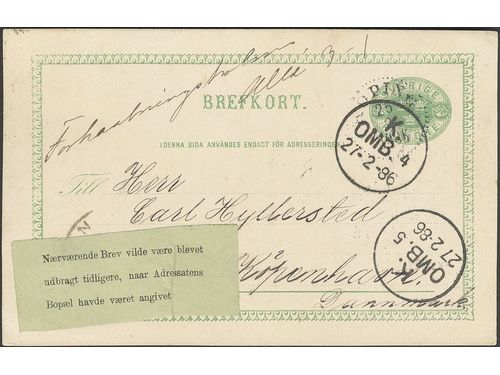 Forhaabningsholm
Alle
SVERIGE
BREFKORT.
K.
OMB. 4
27-2-86
(DENNA SIDA ANVÄNDES ENDAST FÖR ADRESSERINGEN)
Till Herr
Carl Hyllersted
K.
OMB. 5
27 2-86
Köpenhavn.
Dannmark
Nærværende Brev vilde være blevet
udbragt tidligere, naar Adressatens
Bopæl havde været angivet